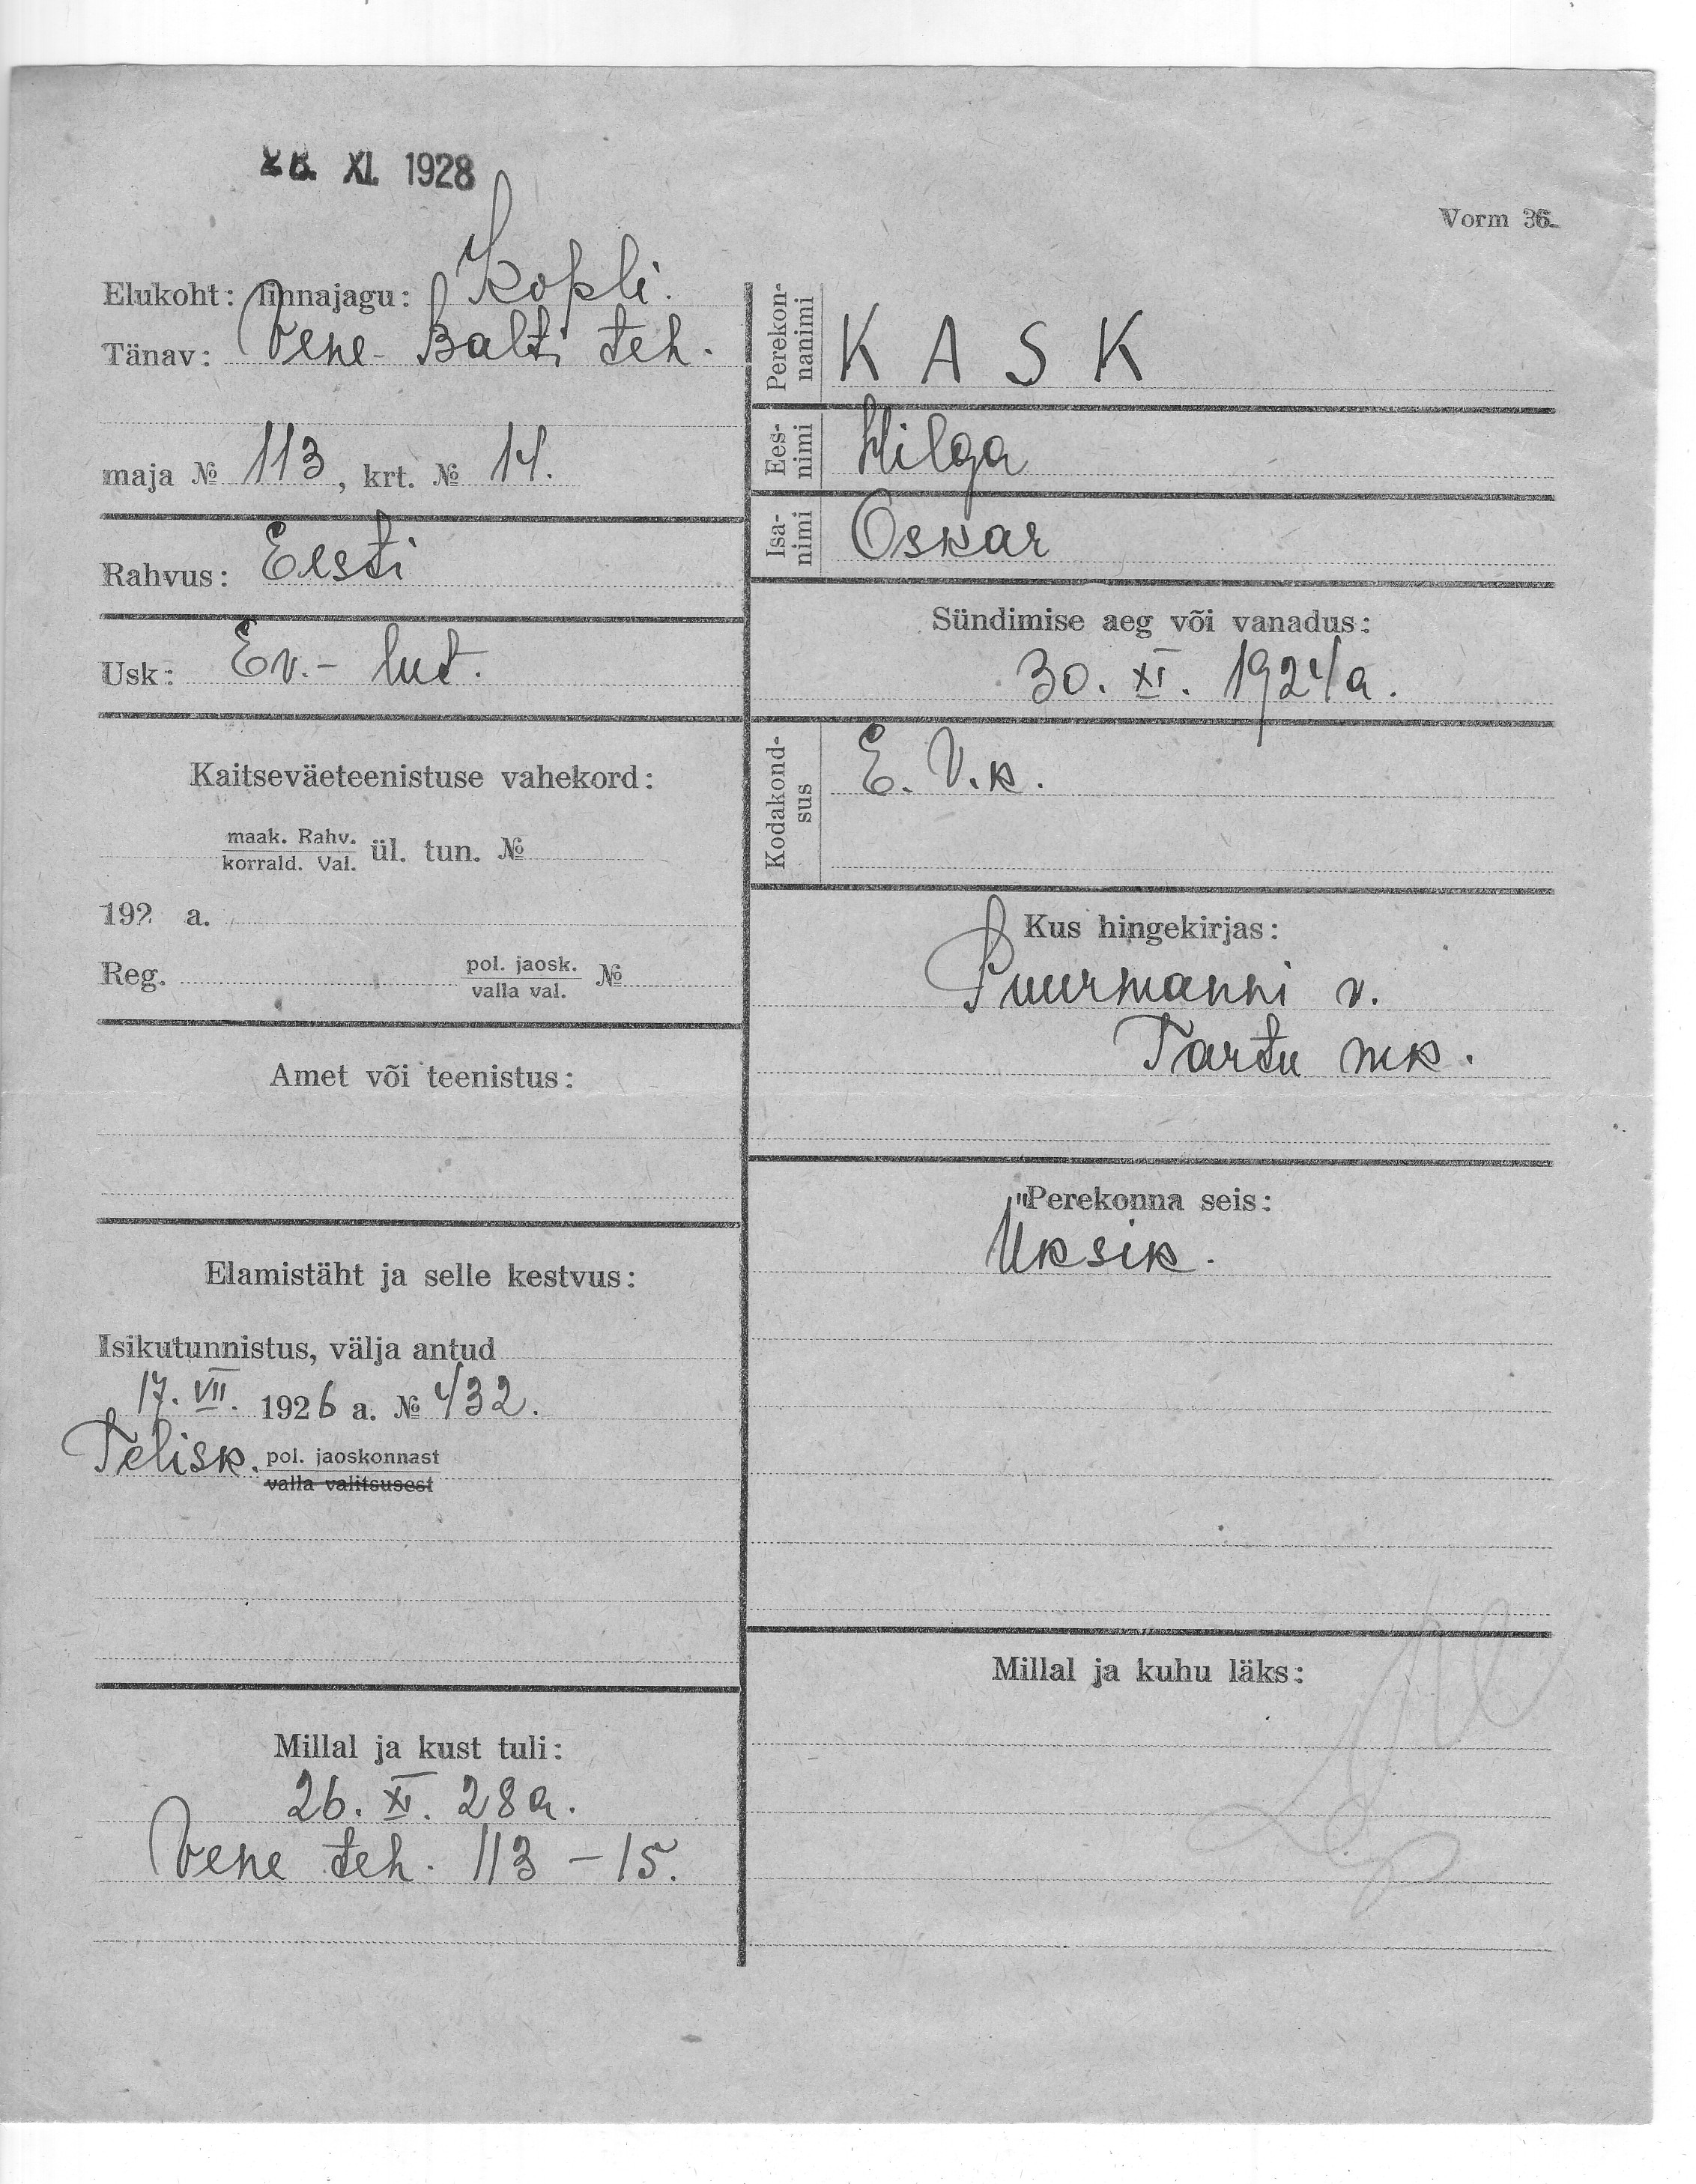 28. XI. 1928
Vorm 36.
Elukoht: linnajagu: Kopli.
Tänav: Vene-Balti teh.
maja № 113, krt. № 14.
Rahvus: Eesti
Usk: Ev.-lut.
Kaitseväeteenistuse vahekord:
maak. Rahv.
korrald. Val. ül. tun. №
192 a.
Reg. pol. jaosk. №
valla val.
Amet või teenistus:
Elamistäht ja selle kestvus:
Isikutunnistus, välja antud
17. VII. 1926 a. № 432.
Telisk. pol. jaoskonnast
valla valitsusest
Millal ja kust tuli:
26. XI. 28 a.
Vene teh. 113 - 15.
Perekon-
nanimi
KASK
Ees-
nimi
Hilga
Isa-
nimi
Oskar
Sündimise aeg või vanadus:
30. XI. 1924 a.
Kodakond-
sus
E. V. k.
Kus hingekirjas:
Puurmanni v.
Tartu mk.
Perekonna seis:
Üksik.
Millal ja kuhu läks: